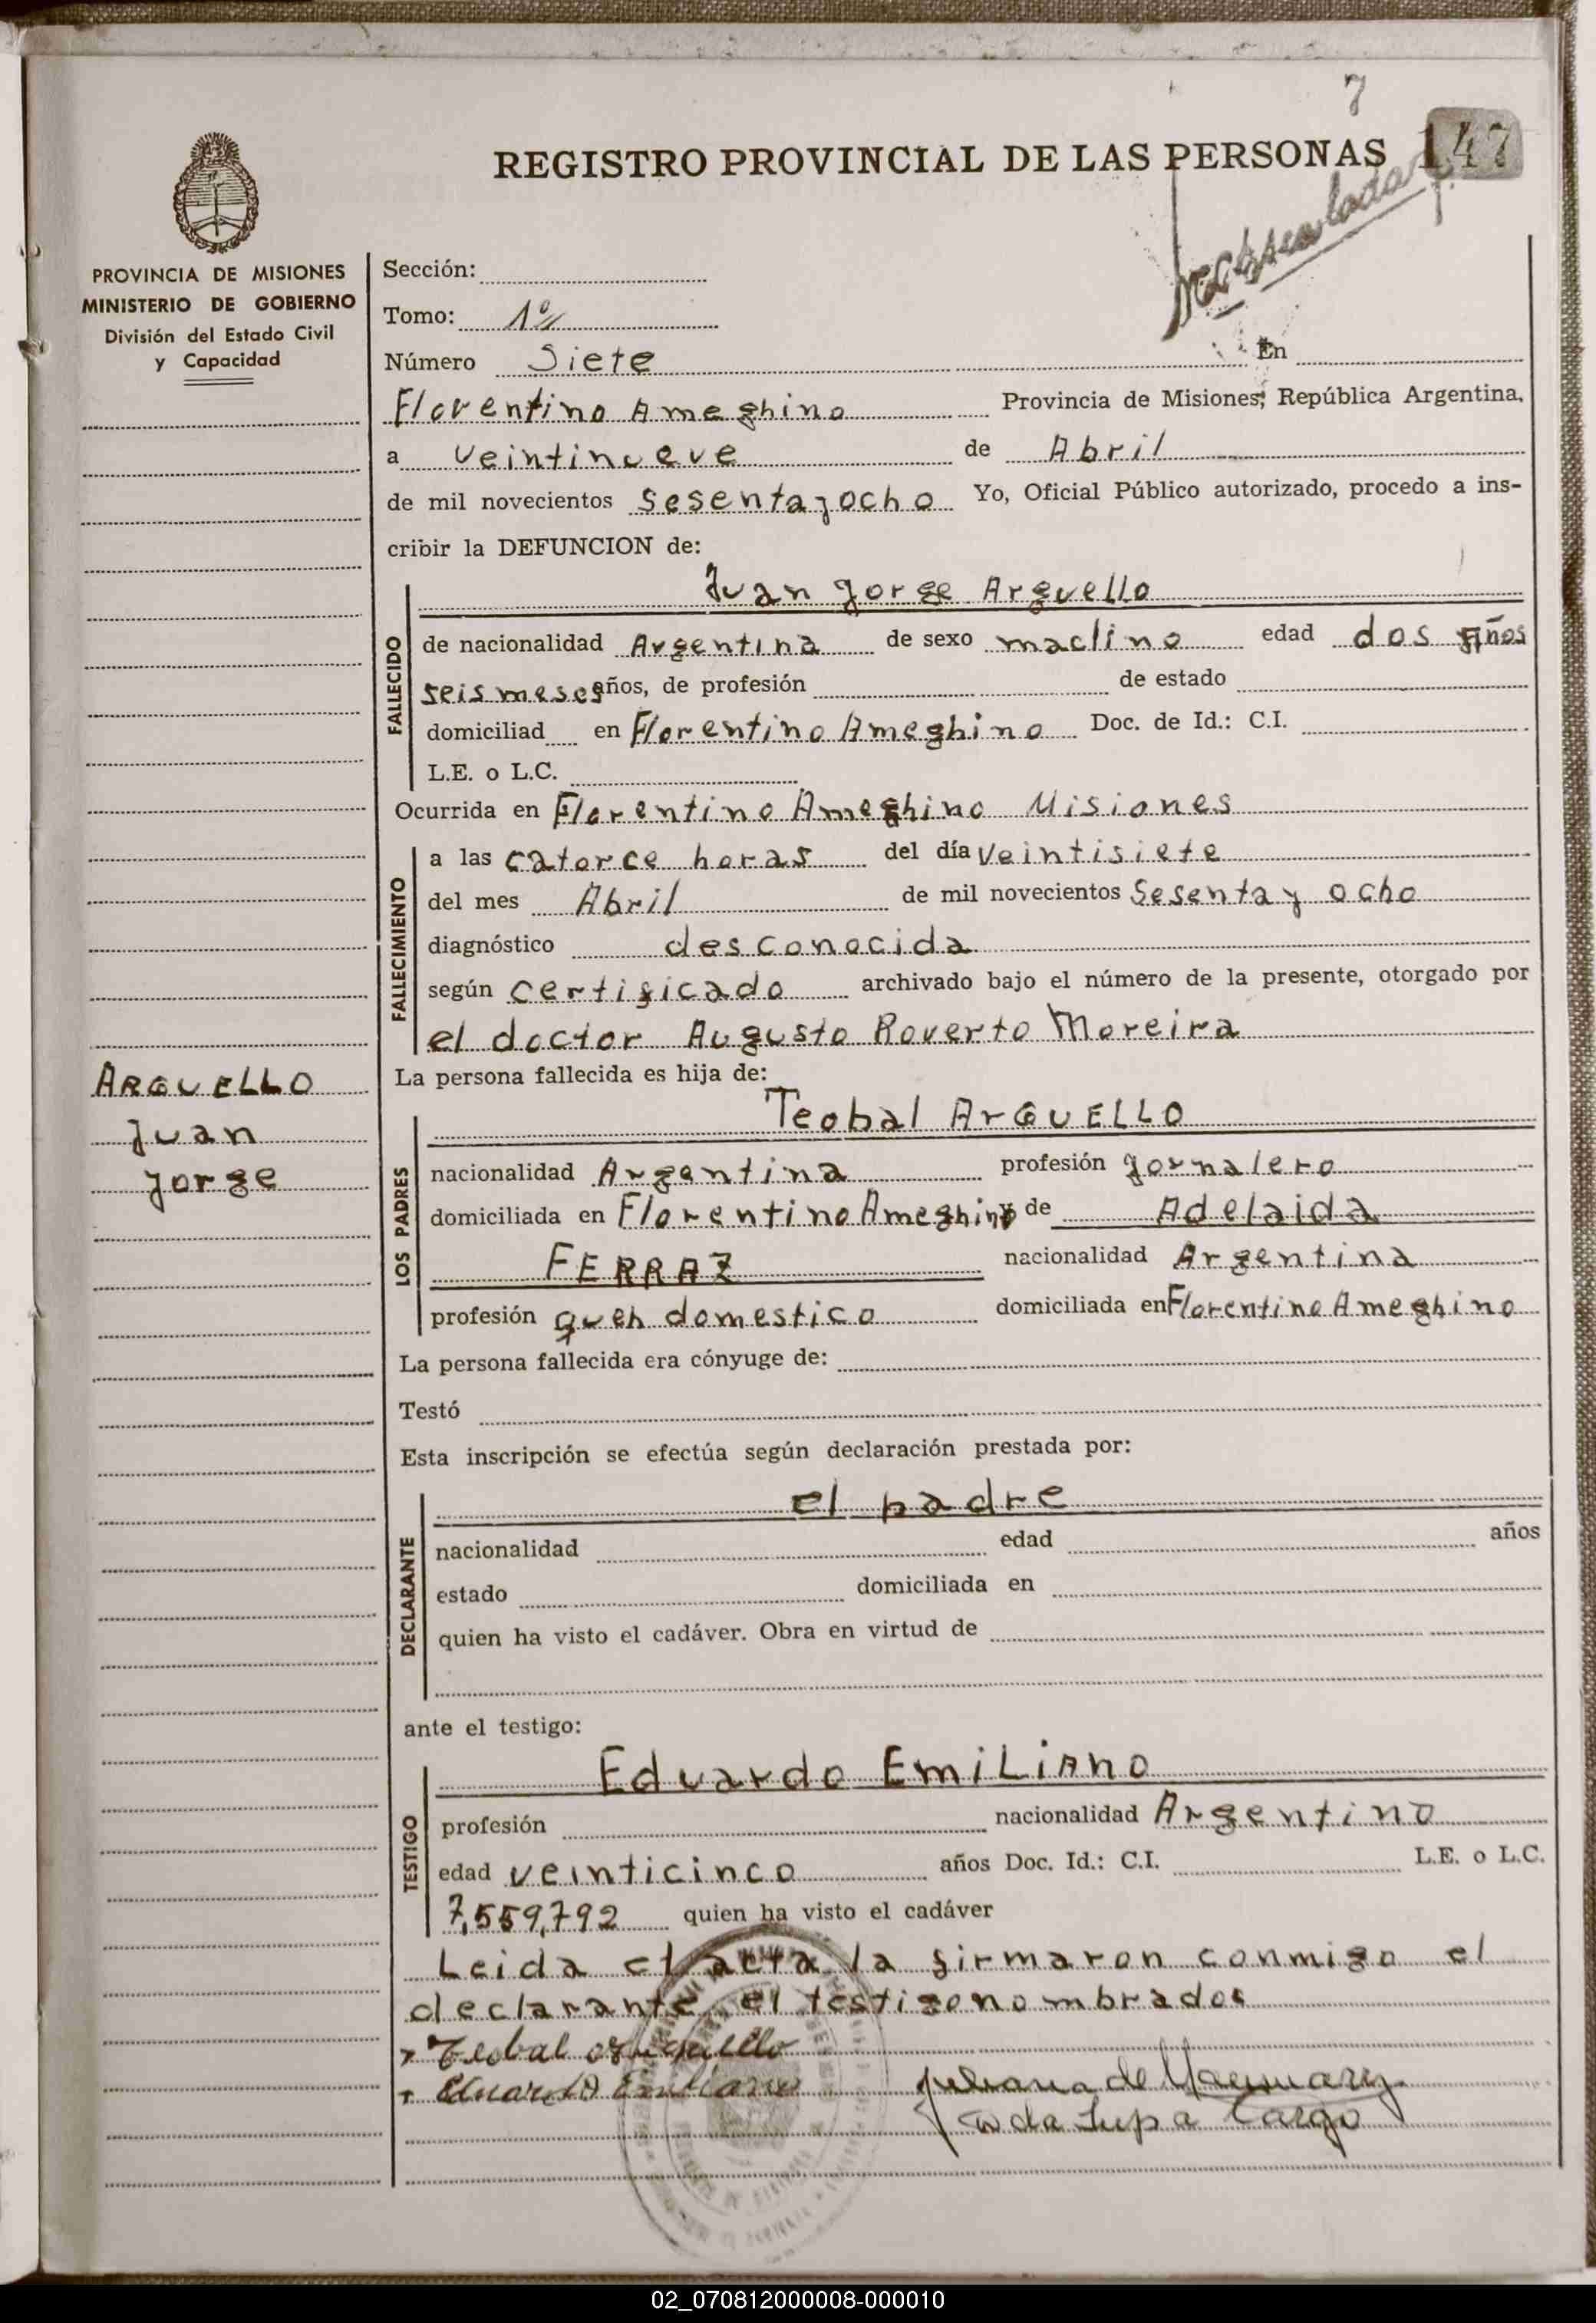 7
REGISTRO PROVINCIAL DE LAS PERSONAS 147
PROVINCIA DE MISIONES
MINISTERIO DE GOBIERNO
División del Estado Civil
y Capacidad
Sección:
Tomo: 1º
Número Siete En
Florentino Ameghino Provincia de Misiones, República Argentina,
a veintinueve de Abril
de mil novecientos Sesenta y ocho Yo, Oficial Público autorizado, procedo a ins-
cribir la DEFUNCION de:
Juan Jorge Arguello
FALLECIDO
de nacionalidad Argentina de sexo maclino edad dos Años
seis meses años, de profesión de estado
domiciliad en Florentino Ameghino Doc. de Id.: C.I.
L.E. o L.C.
Ocurrida en Florentino Ameghino Misiones
FALLECIMIENTO
a las catorce horas del día veintisiete
del mes Abril de mil novecientos Sesenta y ocho
diagnóstico desconocida
según certificado archivado bajo el número de la presente, otorgado por
el doctor Augusto Roverto Moreira
La persona fallecida es hija de:
ARGUELLO
Juan
Jorge
LOS PADRES
Teobal ArGUELLO
nacionalidad Argentina profesión Jornalero
domiciliada en Florentino Ameghino y de Adelaida
FERRAZ nacionalidad Argentina
profesión queh domestico domiciliada en Florentino Ameghino
La persona fallecida era cónyuge de:
Testó
Esta inscripción se efectúa según declaración prestada por:
DECLARANTE
el padre
nacionalidad edad años
estado domiciliada en
quien ha visto el cadáver. Obra en virtud de
ante el testigo:
TESTIGO
Eduardo EmiLiAno
profesión nacionalidad Argentino
edad veinticinco años Doc. Id.: C.I. L.E. o L.C.
7,559,792 quien ha visto el cadáver
Leida el acta la firmaron conmigo el
declarante, el testigo nombrados
Teobal
Eduardo Emiliano
Juliana de
02_070812000008-000010